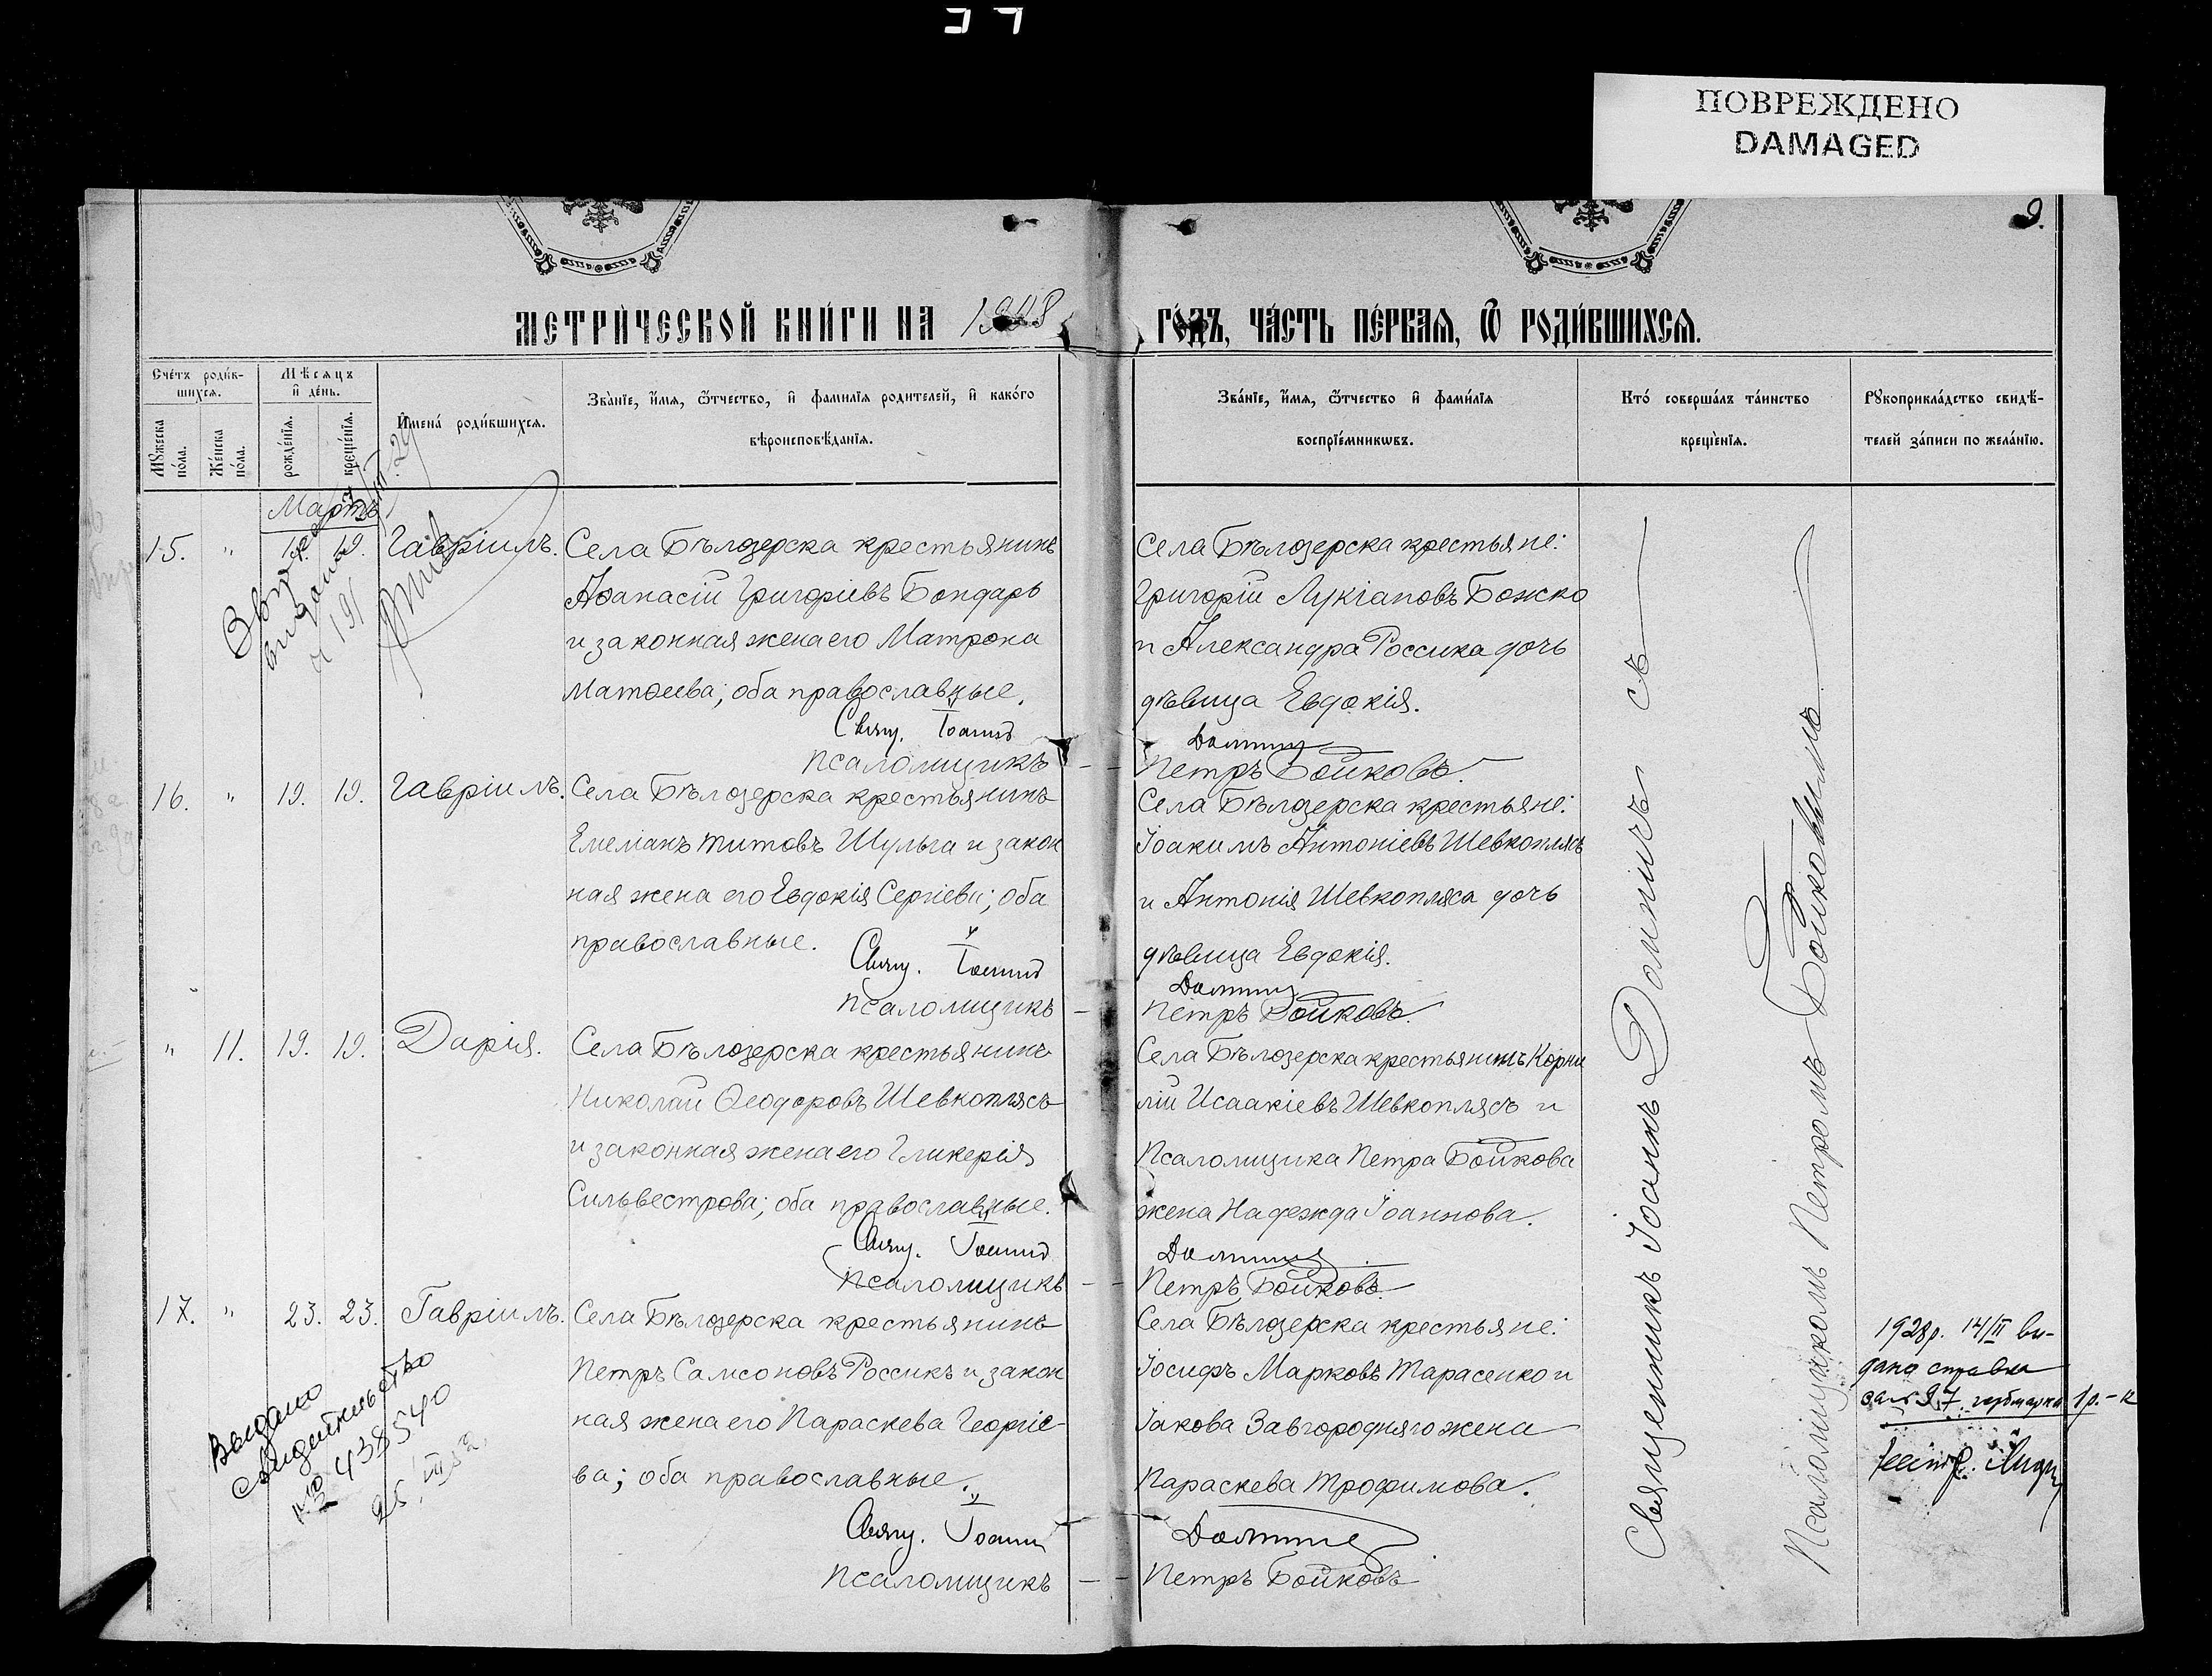 ПОВРЕЖДЕНО
DAMAGED
9.
МЕТРИ́ЧЕСКОЙ КНИ́ГИ НА
ГО́ДЪ, ЧА́СТЬ ПЕ́РВАЯ, Ѽ РОДИ́ВШИХСЯ.
Сче́тъ роди́в-
шихся.
Мꙋ́жеска по́ла.
Же́нска по́ла.
Мѣ́сяцъ
и҆ де́нь.
рожде́нїя.
креще́нїя.
И҆мена́ роди́вшихся.
Зва́нїе, и҆́мя, ѻ҆́тчество, и҆ фами́лїя роди́телей, и҆ како́го
вѣроисповѣ́данїя.
Зва́нїе, и҆́мя, ѻ҆́тчество и҆ фами́лїя
воспрїе́мникѡвъ.
Кто́ соверша́лъ та́инство
креще́нїя.
Рꙋкоприкла́дство свидѣ́-
телей за́писи по жела́нїю.
Мартъ
15. " 19. Гавріилъ. Села Бѣлозерска крестьянинъ
Аѳанасій Григоріевъ Бондарь
и законная жена его Матрона
Матѳеева; оба православные.
Свящ. Іоаннъ
Псаломщикъ
Села Бѣлозерска крестьяне:
Григорій Лукіановъ Божко
и Александра Россика дочь
дѣвица Евдокія.
Доминичъ
Петръ Бойковъ.
16. " 19. 19. Гавріилъ. Села Бѣлозерска крестьянинъ
Емеліанъ Титовъ Шульга и закон
ная жена его Евдокія Сергіева; оба
православные.
Свящ. Іоаннъ
Псаломщикъ
Села Бѣлозерска крестьяне:
Іоакимъ Антоніевъ Шевкоплясъ
и Антонія Шевкопляса дочь
дѣвица Евдокія.
Доминичъ
Петръ Бойковъ.
" 11. 19. 19. Дарія. Села Бѣлозерска крестьянинъ
Николай Ѳеодоровъ Шевкоплясъ
и законная жена его Гликерія
Сильвестрова; оба православные.
Свящ. Іоаннъ
Псаломщикъ
Села Бѣлозерска крестьянинъ Корни
лій Исаакіевъ Шевкоплясъ и
Псаломщика Петра Бойкова
жена Надежда Іоаннова.
Доминичъ
Петръ Бойковъ.
17. " 23. 23. Гавріилъ. Села Бѣлозерска крестьянинъ
Петръ Самсоновъ Россикъ и закон
ная жена его Параскева Георгіе-
ва; оба православные.
Свящ. Іоаннъ
Псаломщикъ
Села Бѣлозерска крестьяне:
Іосифъ Марковъ Тарасенко и
Іакова Завгородняго жена
Параскева Трофимова.
Доминичъ
Петръ Бойковъ
Священникъ Іоаннъ Доминичъ съ
Псаломщикомъ Петромъ Бойковымъ
Выдано
свидетельство
№ 438540
1928р. 14/II ви-
дано справки